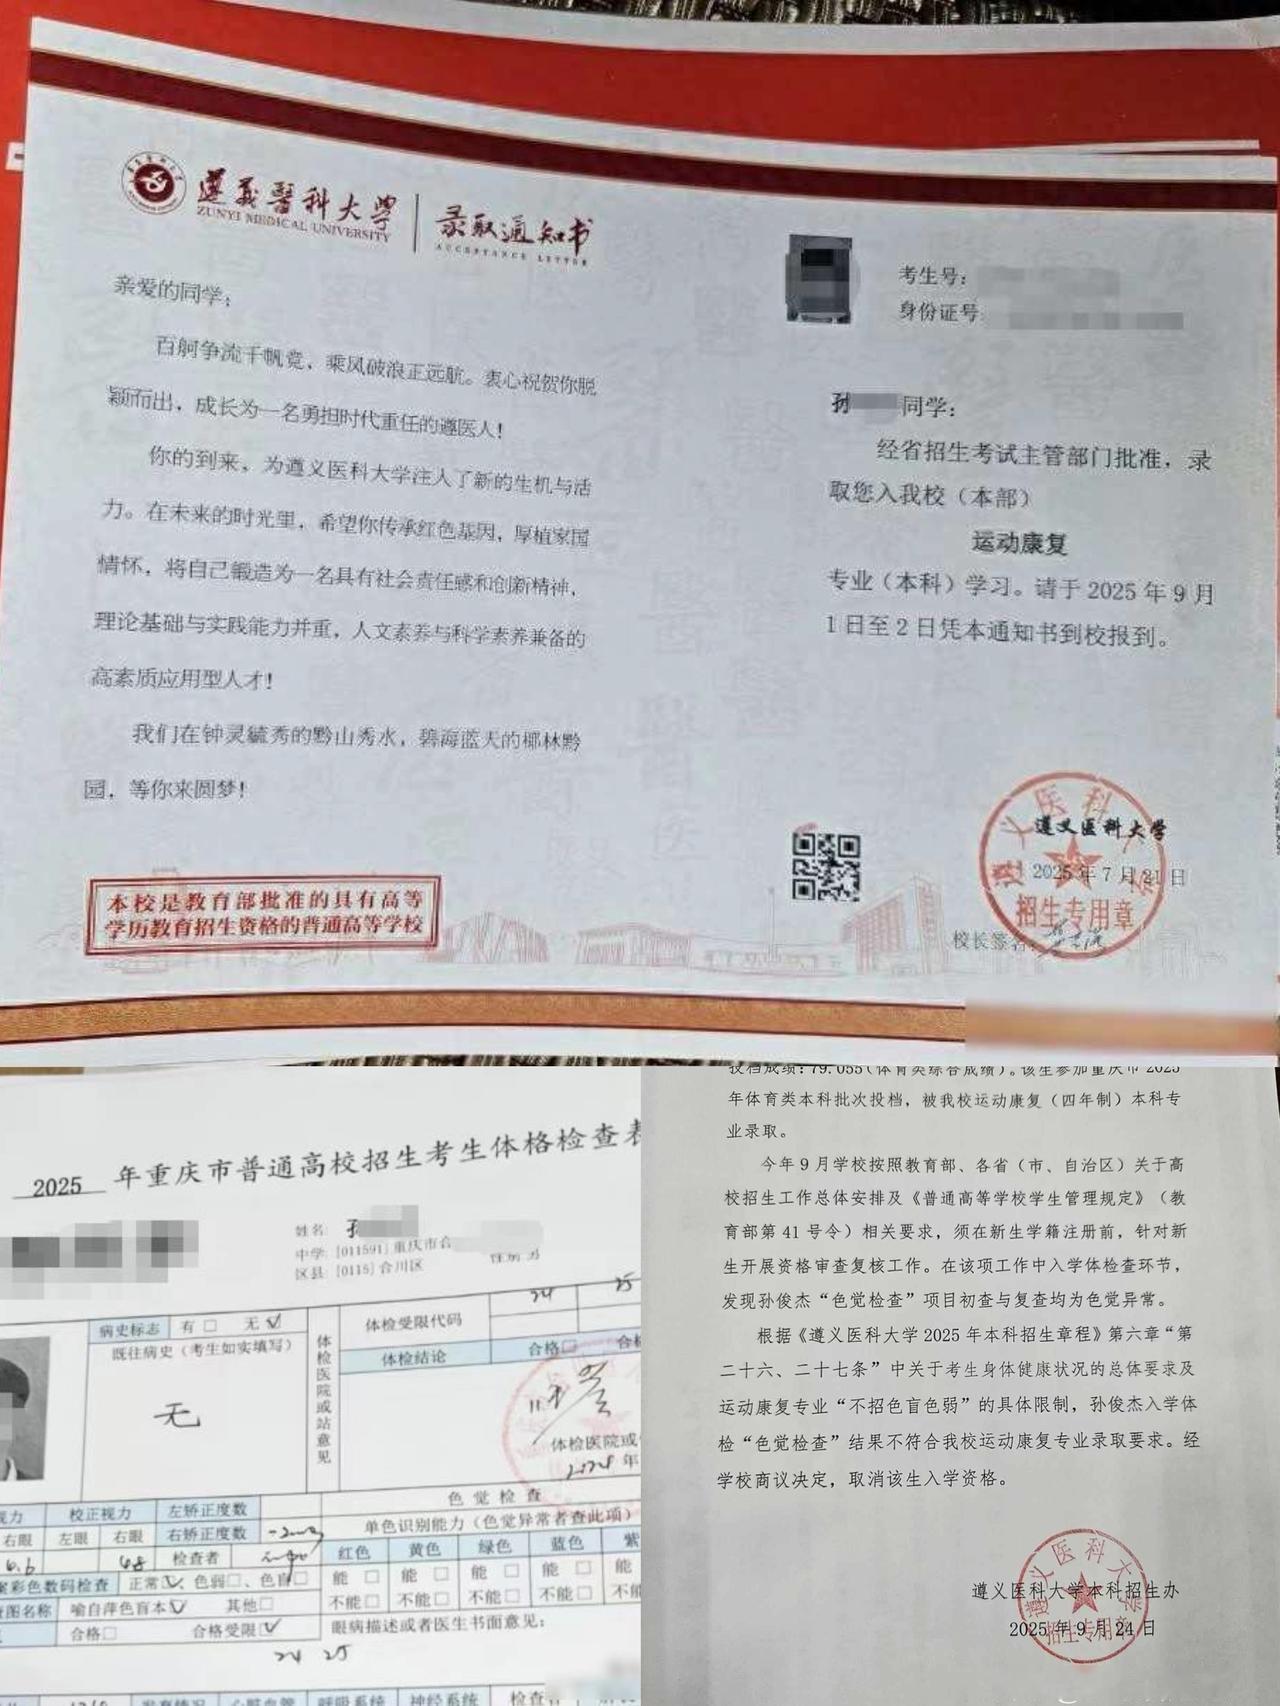 遵義醫科大學
ZUNYI MEDICAL UNIVERSITY
录取通知书
ACCEPTANCE LETTER
亲爱的同学：
百舸争流千帆竞，乘风破浪正远航。衷心祝贺你脱
颖而出，成长为一名勇担时代重任的遵医人！
你的到来，为遵义医科大学注入了新的生机与活
力。在未来的时光里，希望你传承红色基因，厚植家国
情怀，将自己锻造为一名具有社会责任感和创新精神，
理论基础与实践能力并重，人文素养与科学素养兼备的
高素质应用型人才！
我们在钟灵毓秀的黔山秀水，碧海蓝天的椰林黔
园，等你来圆梦！
本校是教育部批准的具有高等
学历教育招生资格的普通高等学校
考生号：
身份证号
孙 同学：
经省招生考试主管部门批准，录
取您入我校（本部）
运动康复
专业（本科）学习。请于 2025 年 9 月
1 日至 2 日凭本通知书到校报到。
遵义医科大学
2025 年 7 月 21 日
遵义医科大学
招生专用章
校长签名
2025 年重庆市普通高校招生考生体格检查表
姓名：孙
中学：[011591] 重庆市合
性别 男
区县：[0115] 合川区
病史标志 有 □ 无 ☑
既往病史（考生如实填写）
无
体检医院或站意见
体检受限代码
24 25
体检结论
合格□
体检医院或
年
视力 校正视力 左矫正度数
右眼 左眼 右眼 右矫正度数
4.8 检查者
色觉检查
单色识别能力（色觉异常者查此项）
红色 黄色 绿色 蓝色 紫
能 □ 能 □ 能 □ 能 □ 能
不能□ 不能□ 不能□ 不能□ 不能
案彩色数码检查 正常☑、色弱□、色盲□
图名称 喻自萍色盲本☑ 其他□
合格□ 合格受限☑
眼病描述或者医生书面意见：
24 25
发育情况 心脏血管 呼吸系统 神经系统 检查者
投档成绩：79.055（体育类综合成绩）。该生参加重庆市 2025
年体育类本科批次投档，被我校运动康复（四年制）本科专
业录取。
今年 9 月学校按照教育部、各省（市、自治区）关于高
校招生工作总体安排及《普通高等学校学生管理规定》（教
育部第 41 号令）相关要求，须在新生学籍注册前，针对新
生开展资格审查复核工作。在该项工作中入学体检查环节，
发现孙俊杰“色觉检查”项目初查与复查均为色觉异常。
根据《遵义医科大学 2025 年本科招生章程》第六章“第
二十六、二十七条”中关于考生身体健康状况的总体要求及
运动康复专业“不招色盲色弱”的具体限制，孙俊杰入学体
检“色觉检查”结果不符合我校运动康复专业录取要求。经
学校商议决定，取消该生入学资格。
遵义医科大学本科招生办
2025 年 9 月 24 日
遵义医科大学
招生专用章